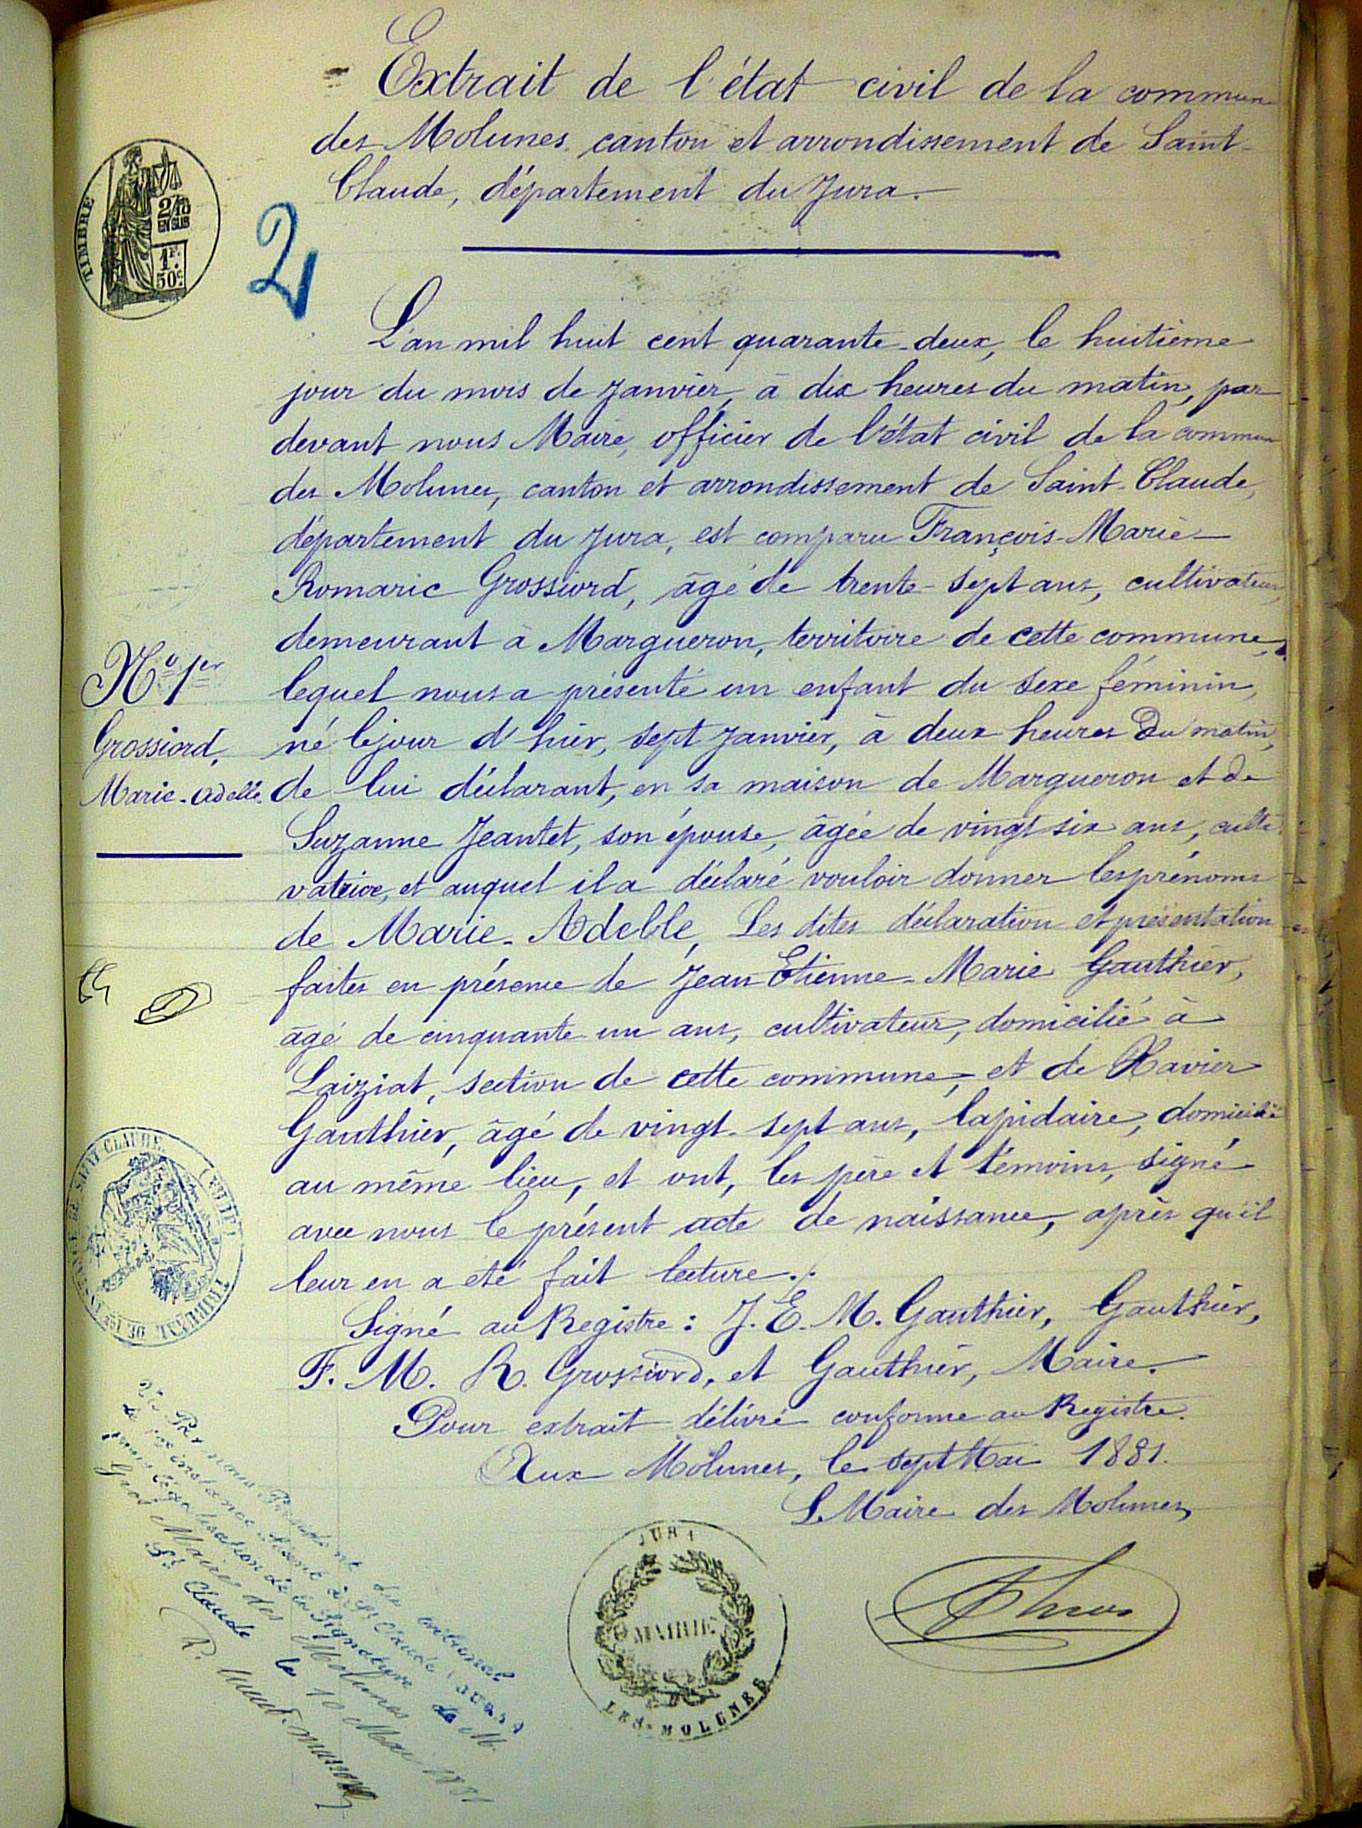 Extrait de l'état civil de la commune
des Molunes, canton et arrondissement de Saint-
Claude, département du Jura.
TIMBRE
2/10
EN SUS
1F.
50C.
2
L'an mil huit cent quarante-deux, le huitième
jour du mois de Janvier, à dix heures du matin, par
devant nous Maire, officier de l'état civil de la commune
des Molunes, canton et arrondissement de Saint-Claude,
département du Jura, est comparu François-Marie-
Romaric Grossiord, âgé de trente-sept ans, cultivateur,
demeurant à Margueron, territoire de cette commune,
lequel nous a présenté un enfant du sexe féminin,
né le jour d'hier, sept Janvier, à deux heures du matin,
de lui déclarant, en sa maison de Margueron et de
Suzanne Jeantet, son épouse, âgée de vingt six ans, culti-
vatrice, et auquel il a déclaré vouloir donner les prénoms
de Marie-Adelle, Les dites déclaration et présentation
faites en présence de Jean Etienne-Marie Gauthier,
agé de cinquante un ans, cultivateur, domicilié à
Laiziat, section de cette commune, et de Xavier
Gauthier, âgé de vingt-sept ans, lapidaire, domicilié
au même lieu, et ont, les père et témoins, signé
avec nous le présent acte de naissance, après qu'il
leur en a eté fait lecture.
Signé au Registre: J. E. M. Gauthier, Gauthier,
F. M. R. Grossiord, et Gauthier, Maire.
Pour extrait délivré conforme au Registre.
Aux Molunes, le sept Mai 1881.
Le Maire des Molunes,
No 1er
Grossiord,
Marie-Adelle.
TRIBUNAL DE 1RE INSTANCE DE SAINT CLAUDE (JURA)
Vu Par nous Président du tribunal
de 1re instance séant à St Claude (Jura)
pour légalisation de la Signature de M.
Gros Maire des Molunes
St Claude le 10 Mai 1881
JURA
MAIRIE
LES-MOLUNES